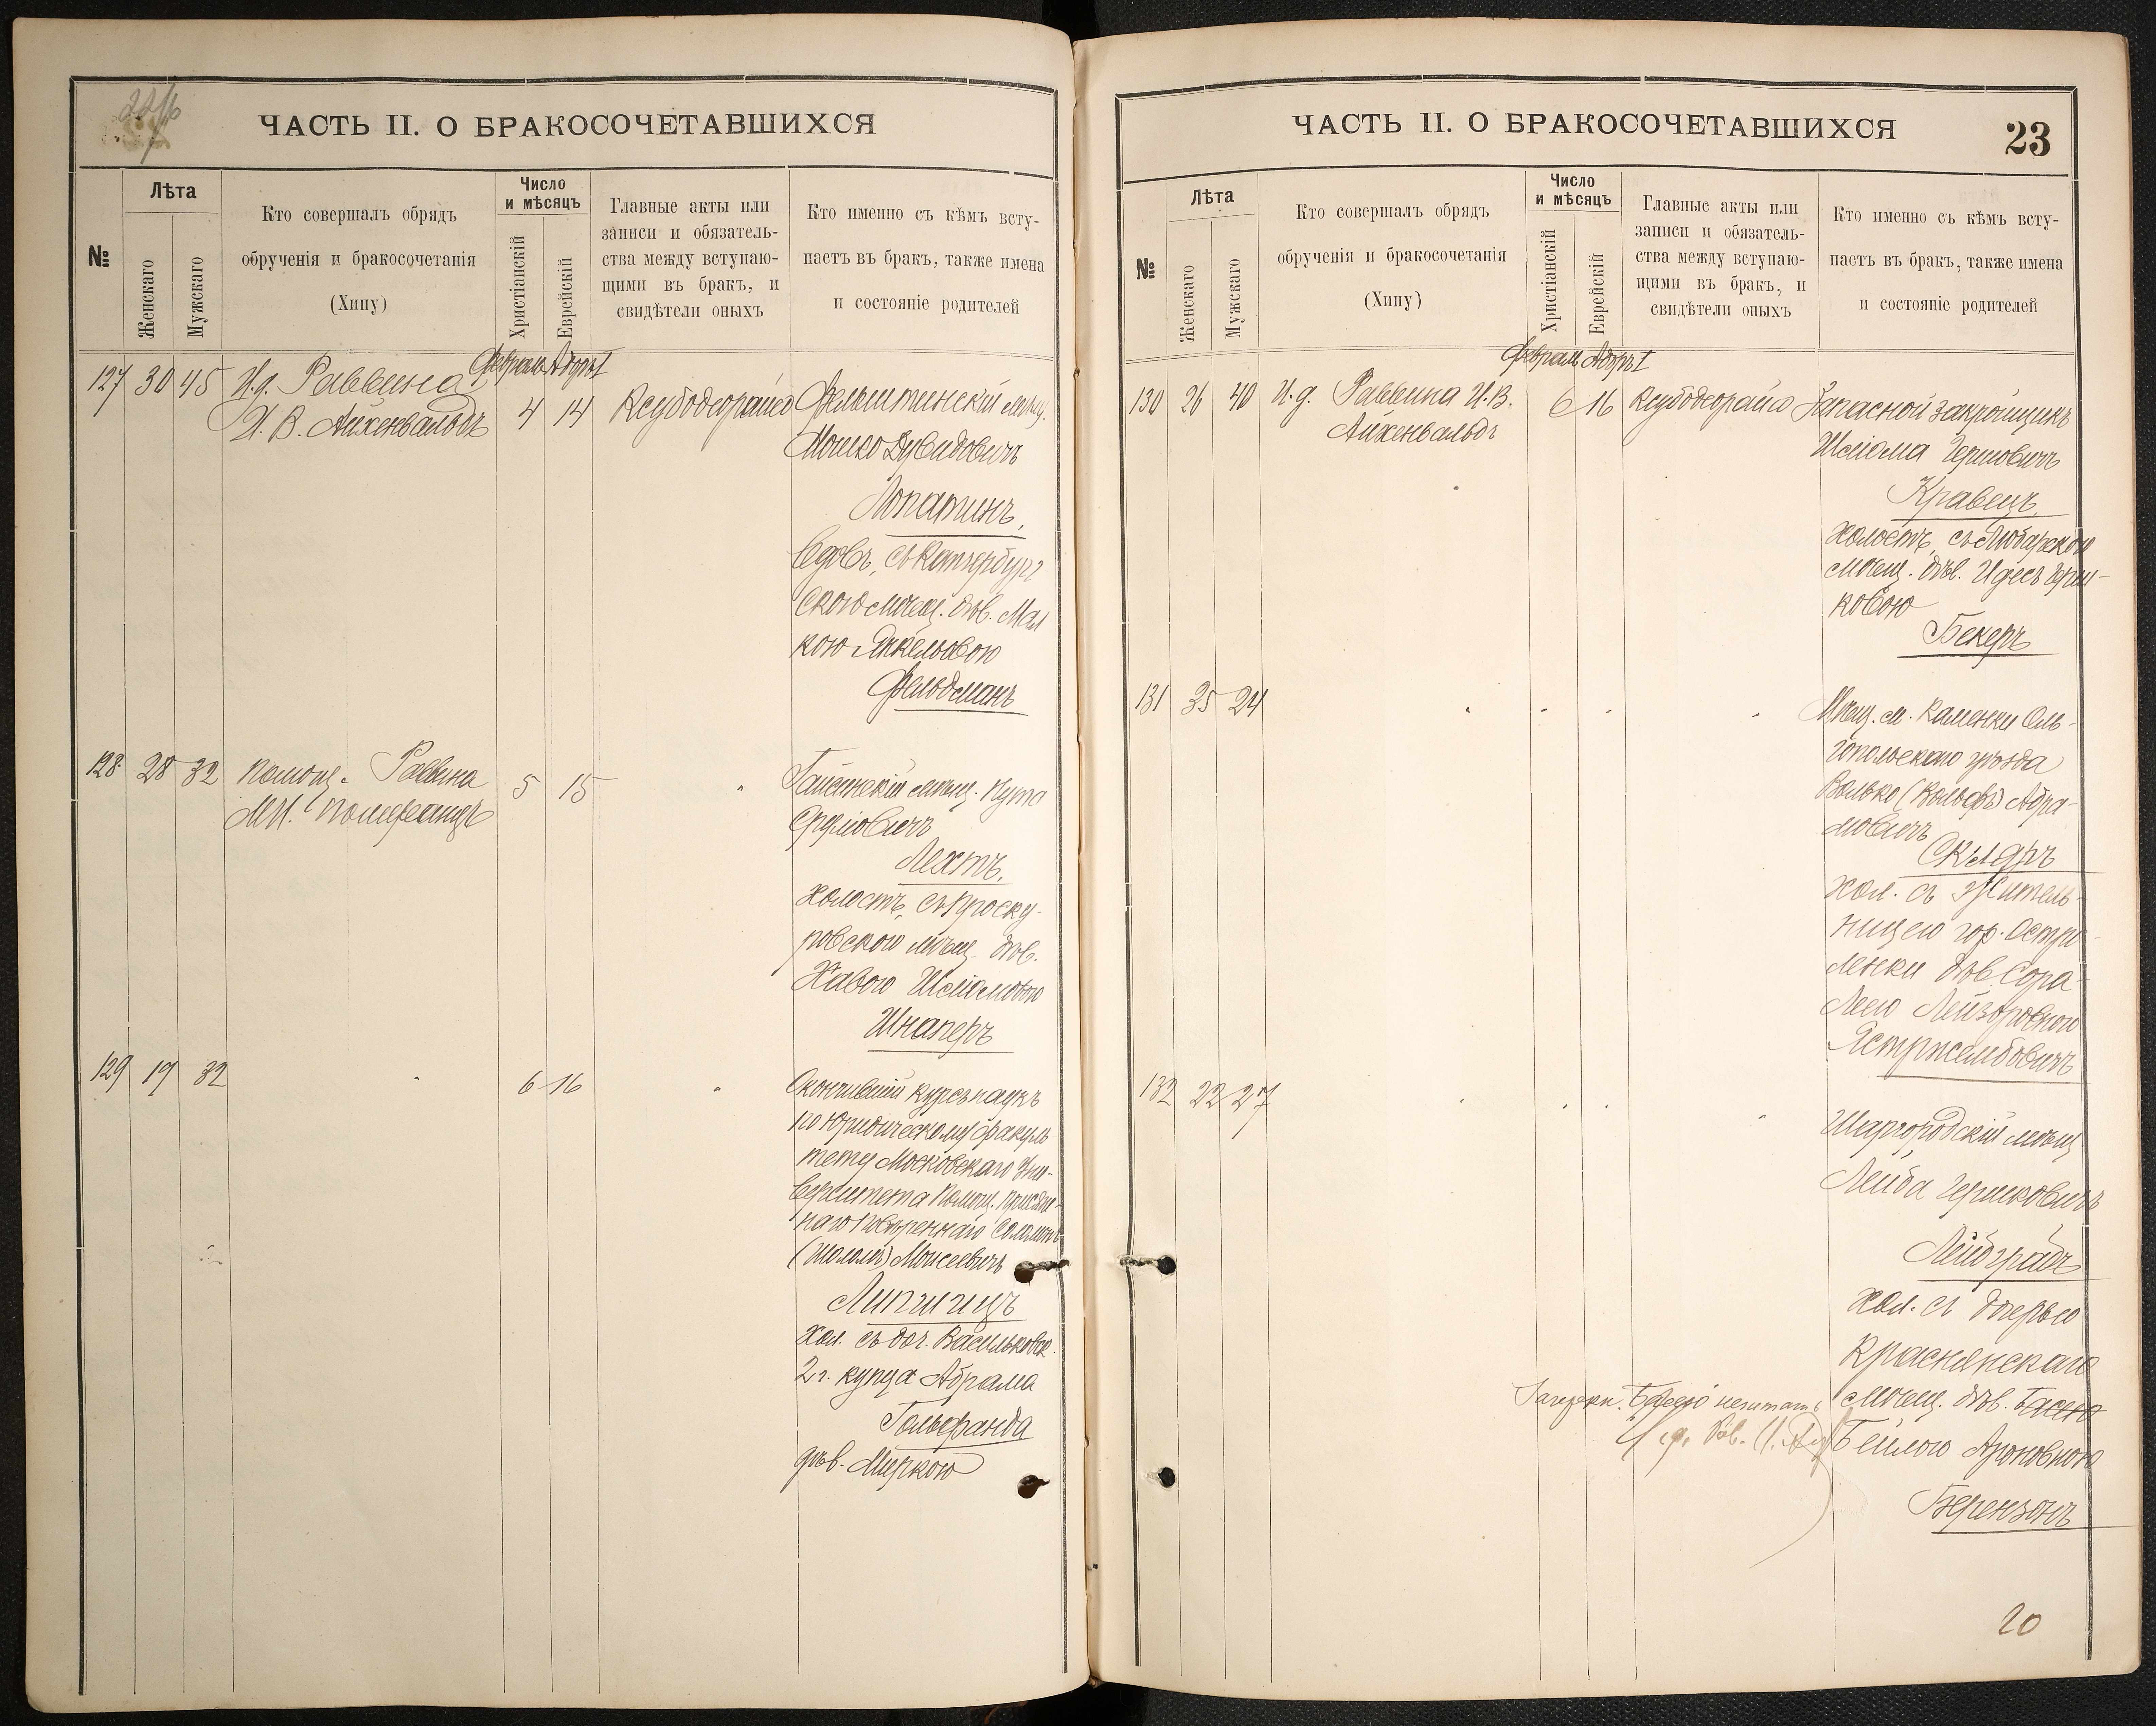 ЧАСТЬ II. О БРАКОСОЧЕТАВШИХСЯ
№
Лѣта
Женскаго
Мужскаго
Кто совершалъ обрядъ
обрученія и бракосочетанія
(Хипу)
Число
и мѣсяцъ
Христіанскій
Еврейскій
Главные акты или
записи и обязатель-
ства между вступаю-
щими въ бракъ, и
свидѣтели оныхъ
Кто именно съ кѣмъ всту-
паетъ въ бракъ, также имена
и состояніе родителей
Февраль Адаръ I
127 30 45 И.д. Раввина
И. В. Айхенвальдъ
4 14 Ксубодеорайсо
Фельштинскій мѣщ.
Мошко Дувидовичъ
Лопатинъ,
вдовъ, съ Катербург
скою мѣщ. дѣв. Мал
кою Янкелевою
Фельдманъ
128 28 32 Помощ. Раввина
5 15
Гайсинскій мѣщ. Нута
Сруловичъ
Лехтъ,
холостъ, съ Проску-
ровскою мѣщ. дѣв.
Хавою Шліомовою
Шнаперъ
129 19 32
6 16
Окончившій курсъ наукъ
по Юридическому факуль
тету Московскаго Уни-
верситета Помощ. Присяж-
наго Повѣреннаго Соломонъ
(Шоломъ) Моисеевичъ
Липшицъ
Хол. съ доч. Васильковск.
2 г. купца Абрама
Гольдфанда
дѣв. Миркою
ЧАСТЬ II. О БРАКОСОЧЕТАВШИХСЯ
23
№
Лѣта
Женскаго
Мужскаго
Кто совершалъ обрядъ
обрученія и бракосочетанія
(Хипу)
Число
и мѣсяцъ
Христіанскій
Еврейскій
Главные акты или
записи и обязатель-
ства между вступаю-
щими въ бракъ, и
свидѣтели оныхъ
Кто именно съ кѣмъ всту-
паетъ въ бракъ, также имена
и состояніе родителей
Февраль Адаръ I
130 26 40 И.д. Раввина И.В.
Айхенвальдъ
6 16 Ксубодеорайсо
Запасной закройщикъ
Шліома Гершовичъ
Кравецъ,
холостъ, съ Любарскою
мѣщ. дѣв. Идесъ Герш-
ковою
Бекеръ
131 35 24
Мѣщ. м. Каменки Оль-
гопольскаго уѣзда
Волько (Вольфъ) Абра-
мовичъ
Скляръ
хол. съ житель-
ницею гор. Остро-
ленки дѣв. Сора-
Леею Лейзоровною
Ястржембовичъ
132 22 27
Шаргородскій мѣщ.
Лейба Гершковичъ
Лейдградъ
хол. съ дочерью
Краснянскаго
мѣщ. дѣв. Басею
Бейлою Ароновною
Берензонъ
Зачеркн. Басею не читать
20